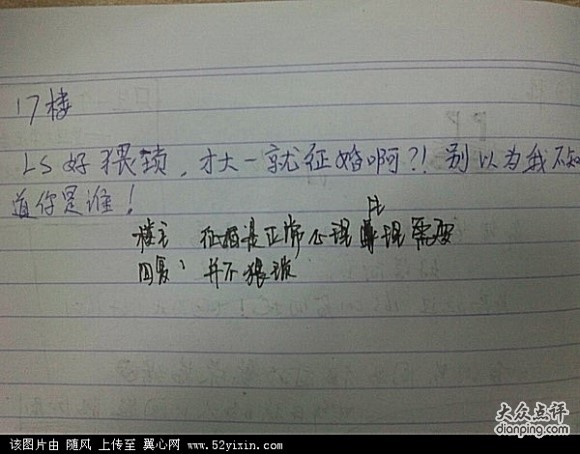 17楼
LS好猥琐，才大一就征婚啊?！别以为我不知
道你是谁！
楼主 征婚是正常心理生理需要
回复： 并不猥琐
大众点评
dianping.com
该图片由 随风 上传至 翼心网 www.52yixin.com